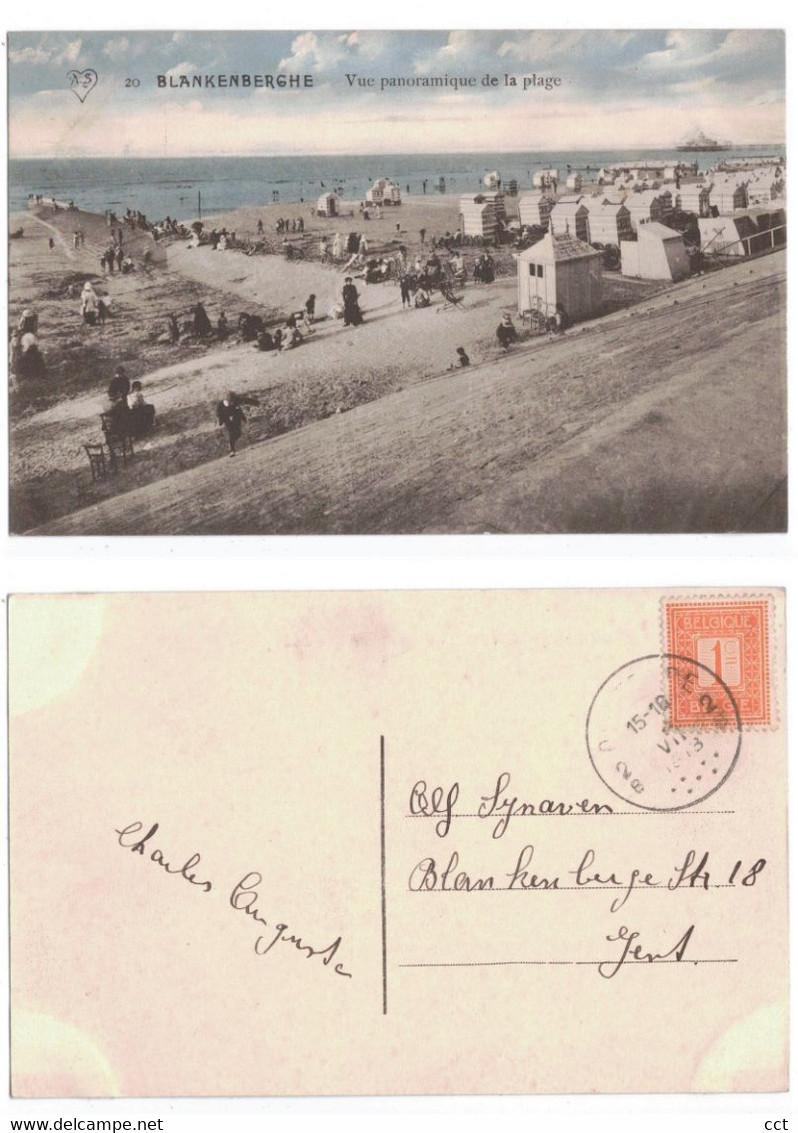 A.S 20 BLANKENBERGHE Vue panoramique de la plage
BELGIQUE
1 C
BELGIË
15-16
VII
1913
Alf Synaven
Blankenberge Str 18
Gent
Charles Auguste
Website : mtm-collections.delcampe.net
cct